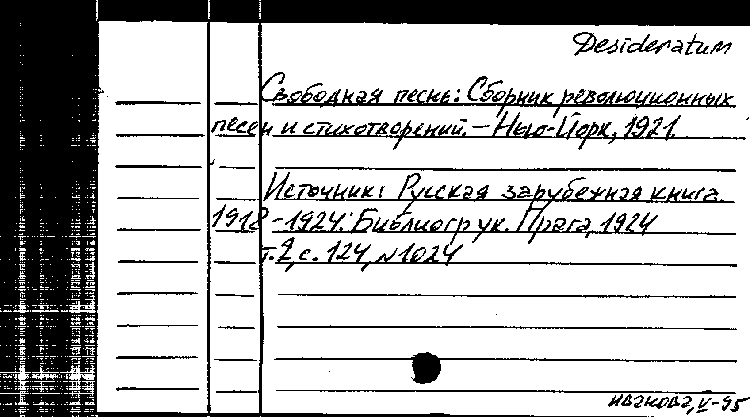 Desideratum
Свободная песнь: Сборник революционных
песен и стихотворений. – Нью-Йорк, 1921.
Источник: Русская зарубежная книга.
1918-1924. Библиогр ук. Прага, 1924
т. 2, с. 124, №1024
Иванова, V-95